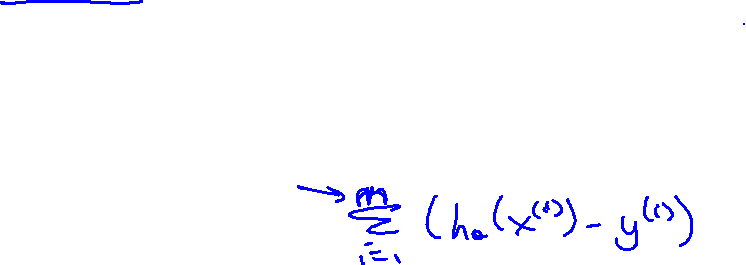 → \sum_{i=1}^{m} (h_θ(x^{(i)}) - y^{(i)})